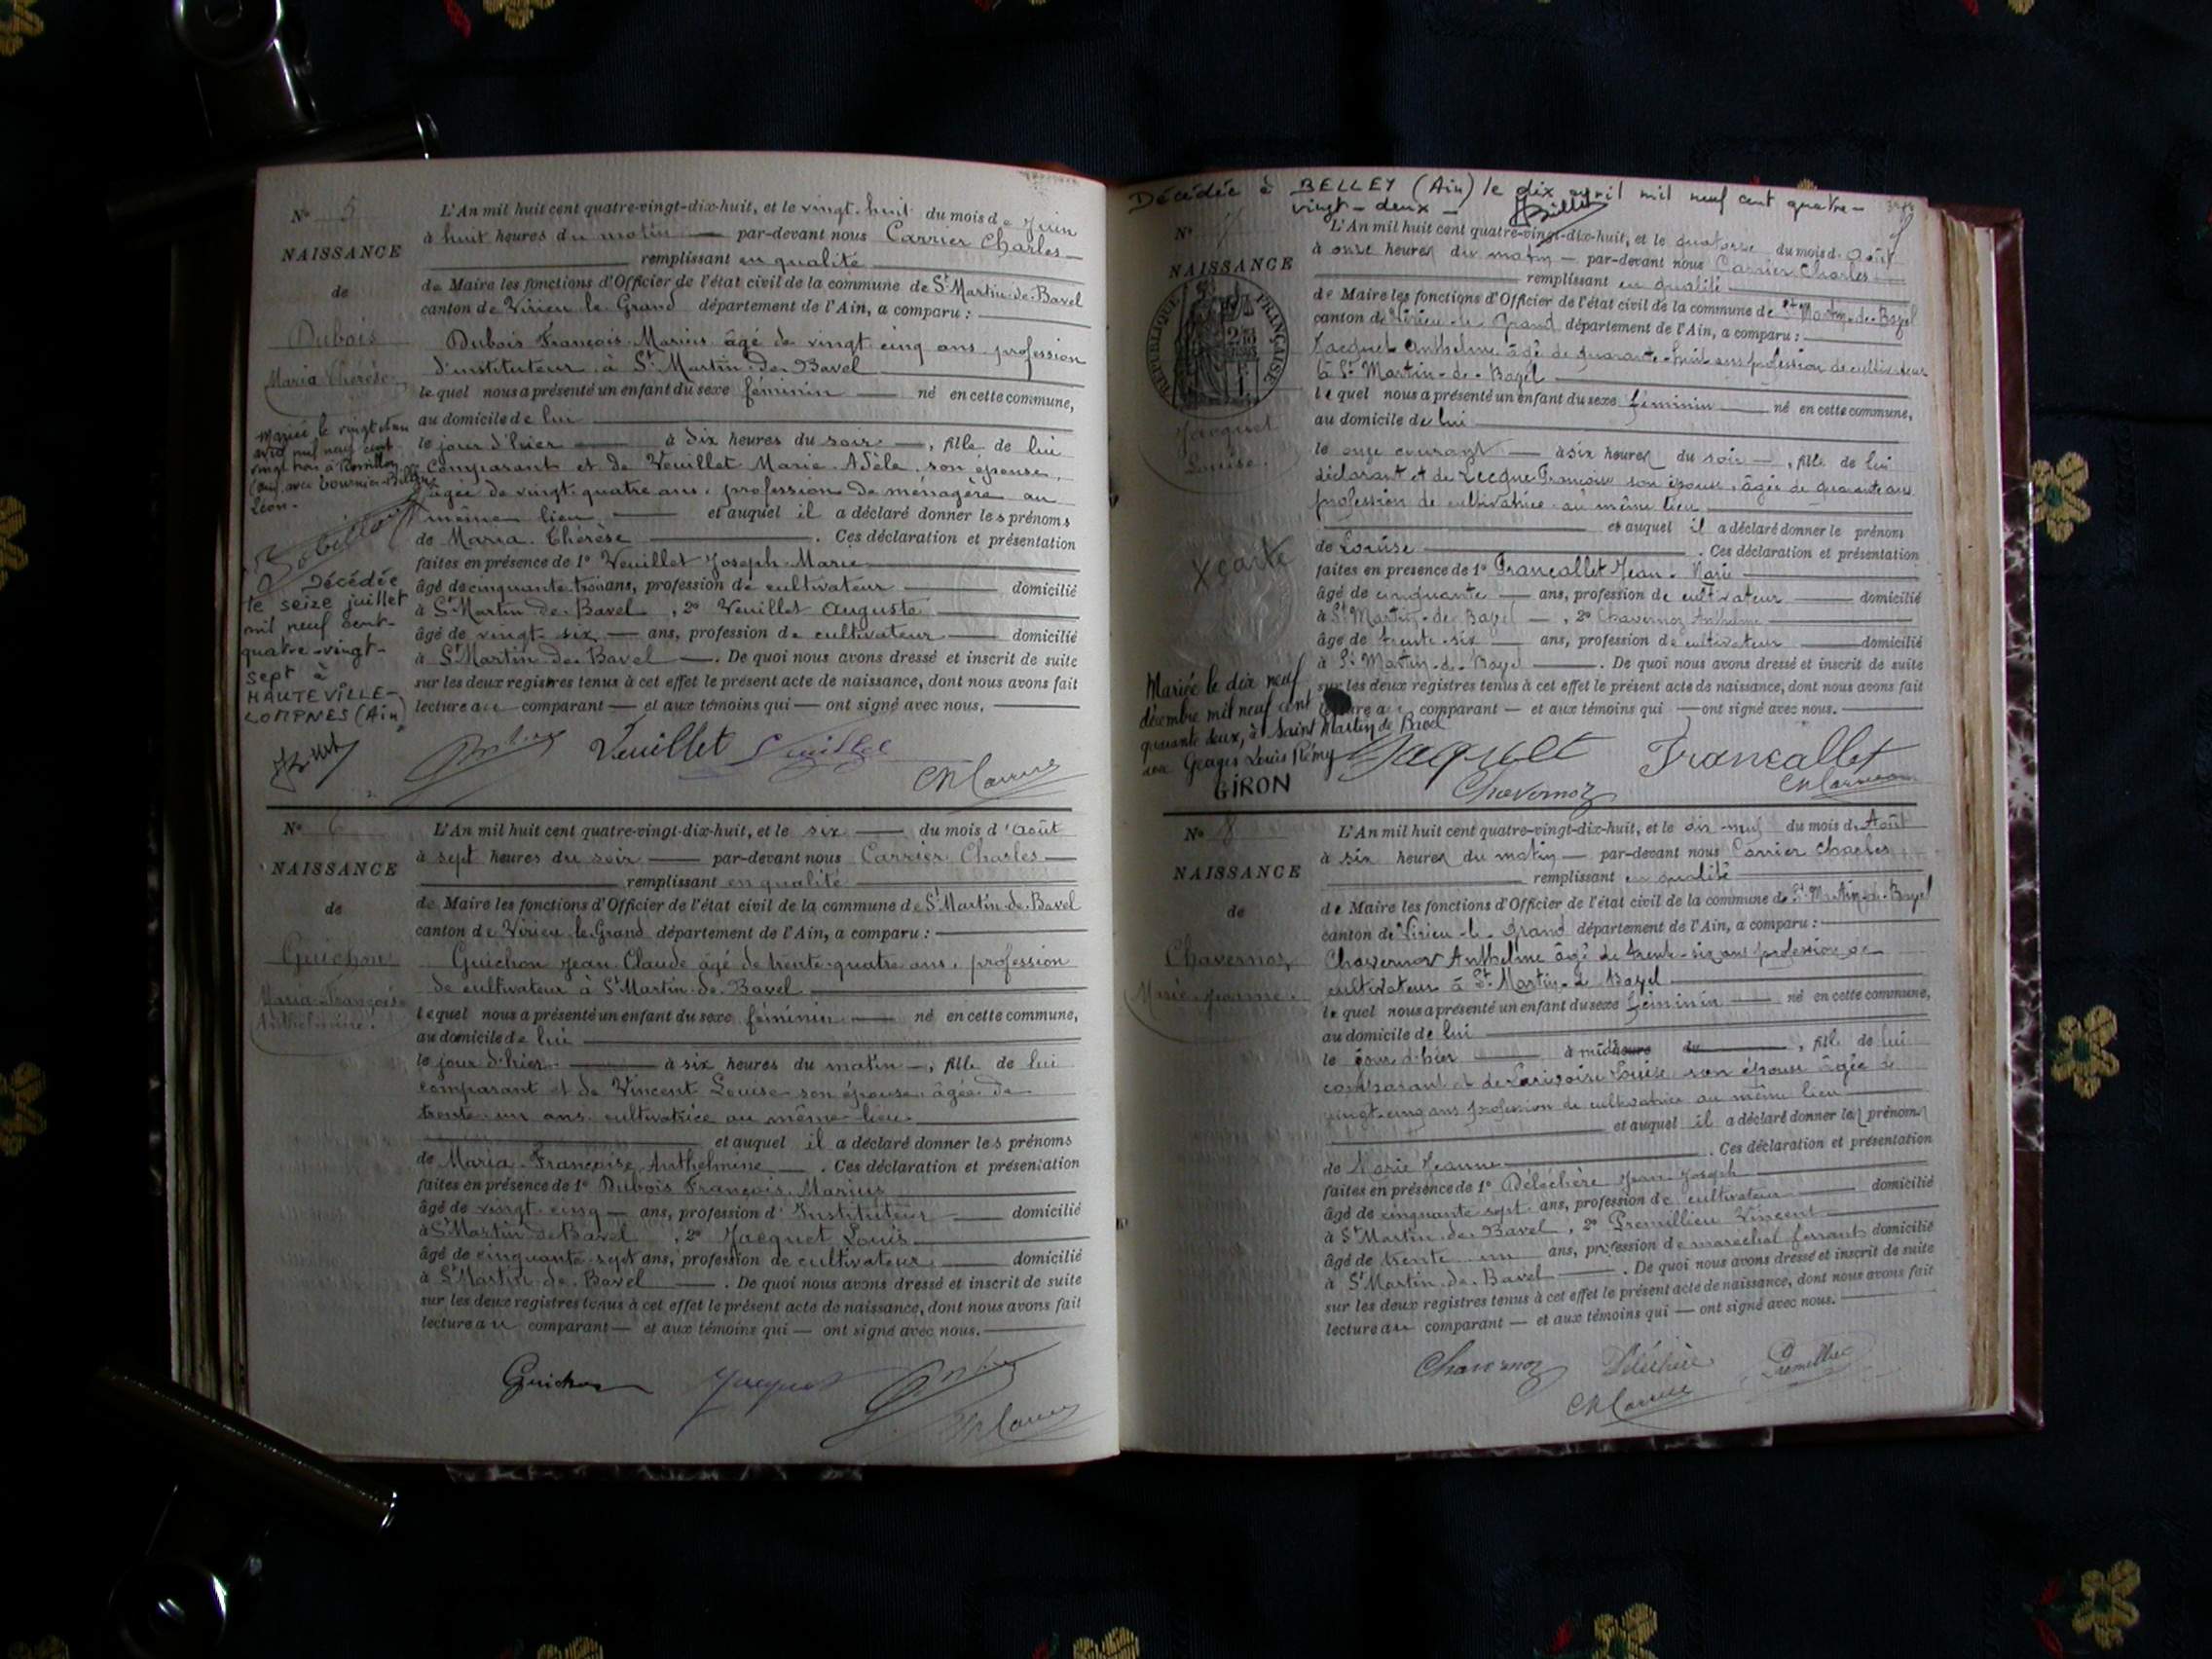 N° 5
NAISSANCE
de
Dubois
Maria Thérèse.
Mariée le vingt et un
avril mil neuf cent
vingt trois à
(Ain) avec
Léon.
Décédée
le seize juillet
mil neuf cent-
quatre-vingt-
sept à
HAUTEVILLE-
LOMPNES (Ain)
L'An mil huit cent quatre-vingt-dix-huit, et le vingt-huit du mois de Juin
à huit heures du matin — par-devant nous Carrier Charles
remplissant en qualité
de Maire les fonctions d'Officier de l'état civil de la commune de St Martin-de-Bavel
canton de Virieu le Grand département de l'Ain, a comparu :
Dubois François Marius âgé de vingt cinq ans, profession
d'instituteur à St Martin-de-Bavel
lequel nous a présenté un enfant du sexe féminin — né en cette commune,
au domicile de lui
le jour d'hier — à dix heures du soir —, fille de lui
Comparant et de Veuillet Marie-Adèle, son épouse,
âgée de vingt quatre ans, profession de ménagère au
même lieu — et auquel il a déclaré donner les prénoms
de Maria-Thérèse — . Ces déclaration et présentation
faites en présence de 1° Veuillet Joseph-Marie
âgé de cinquante trois ans, profession de cultivateur — domicilié
à St Martin de Bavel, 2° Veuillet Auguste
âgé de vingt-six — ans, profession de cultivateur — domicilié
à St Martin de Bavel —. De quoi nous avons dressé et inscrit de suite
sur les deux registres tenus à cet effet le présent acte de naissance, dont nous avons fait
lecture au comparant — et aux témoins qui — ont signé avec nous.
Veuillet
N° 6
NAISSANCE
de
Guichon
Maria-Françoise
Anthelmine.
L'An mil huit cent quatre-vingt-dix-huit, et le six — du mois d'Août
à sept heures du soir — par-devant nous Carrier Charles —
remplissant en qualité
de Maire les fonctions d'Officier de l'état civil de la commune de St Martin-de-Bavel
canton de Virieu le Grand département de l'Ain, a comparu :
Guichon Jean Claude âgé de trente-quatre ans, profession
de cultivateur à St Martin-de-Bavel
lequel nous a présenté un enfant du sexe féminin — né en cette commune,
au domicile de lui
le jour d'hier — à six heures du matin —, fille de lui
comparant et de Vincent Louise son épouse, âgée de
trente-un ans, cultivatrice au même lieu.
et auquel il a déclaré donner les prénoms
de Maria-Françoise Anthelmine — . Ces déclaration et présentation
faites en présence de 1° Dubois François Marius
âgé de vingt-cinq — ans, profession d'Instituteur — domicilié
à St Martin de Bavel, 2° Jacquet Louis
âgé de cinquante sept ans, profession de cultivateur — domicilié
à St Martin de Bavel — . De quoi nous avons dressé et inscrit de suite
sur les deux registres tenus à cet effet le présent acte de naissance, dont nous avons fait
lecture au comparant — et aux témoins qui — ont signé avec nous.
Guichon Jacquet
Décédée à BELLEY (Ain) le dix avril mil neuf cent quatre-
vingt-deux —
N° 7
NAISSANCE
RÉPUBLIQUE FRANÇAISE
Jacquet
Louise.
Mariée le dix neuf
décembre mil neuf cent
quarante deux, à Saint Martin de Bavel
avec Georges Louis Rémy
GIRON
L'An mil huit cent quatre-vingt-dix-huit, et le quatorze du mois d'Août
à onze heures du matin — par-devant nous Carrier Charles
remplissant en qualité
de Maire les fonctions d'Officier de l'état civil de la commune de St Martin-de-Bavel
canton de Virieu-le-Grand département de l'Ain, a comparu :
Jacquet Anthelme âgé de quarante-huit ans profession de cultivateur
à St Martin-de-Bavel
lequel nous a présenté un enfant du sexe féminin — né en cette commune,
au domicile de lui
le onze courant — à six heures du soir —, fille de lui
déclarant et de Françoise son épouse, âgée de quarante ans
profession de cultivatrice au même lieu
et auquel il a déclaré donner le prénom
de Louise — . Ces déclaration et présentation
faites en présence de 1° Francallet Jean-Marie
âgé de cinquante — ans, profession de cultivateur — domicilié
à St Martin-de-Bavel —, 2° Chavernoz Anthelme
âgé de trente-six — ans, profession de cultivateur — domicilié
à St Martin-de-Bavel — . De quoi nous avons dressé et inscrit de suite
sur les deux registres tenus à cet effet le présent acte de naissance, dont nous avons fait
lecture au comparant — et aux témoins qui — ont signé avec nous.
Jacquet Francallet
Chavernoz
N° 8
NAISSANCE
de
Chavernoz
Marie-Jeanne.
L'An mil huit cent quatre-vingt-dix-huit, et le dix-neuf du mois d'Août
à six heures du matin — par-devant nous Carrier Charles
remplissant en qualité
de Maire les fonctions d'Officier de l'état civil de la commune de St Martin-de-Bavel
canton de Virieu-le-Grand département de l'Ain, a comparu :
Chavernoz Anthelme âgé de trente-six ans profession de
cultivateur à St Martin-de-Bavel
lequel nous a présenté un enfant du sexe féminin — né en cette commune,
au domicile de lui
le jour d'hier — à midi heures du —, fille de lui
comparant et de Louise son épouse âgée de
vingt-cinq ans profession de cultivatrice au même lieu
et auquel il a déclaré donner les prénoms
de Marie Jeanne — . Ces déclaration et présentation
faites en présence de 1° Déléchère Jean-Joseph
âgé de cinquante sept ans, profession de cultivateur — domicilié
à St Martin de Bavel, 2° Premillieu Vincent
âgé de trente un ans, profession de maréchal ferrant domicilié
à St Martin-de-Bavel — . De quoi nous avons dressé et inscrit de suite
sur les deux registres tenus à cet effet le présent acte de naissance, dont nous avons fait
lecture au comparant — et aux témoins qui — ont signé avec nous.
Chavernoz Déléchère Premillieu